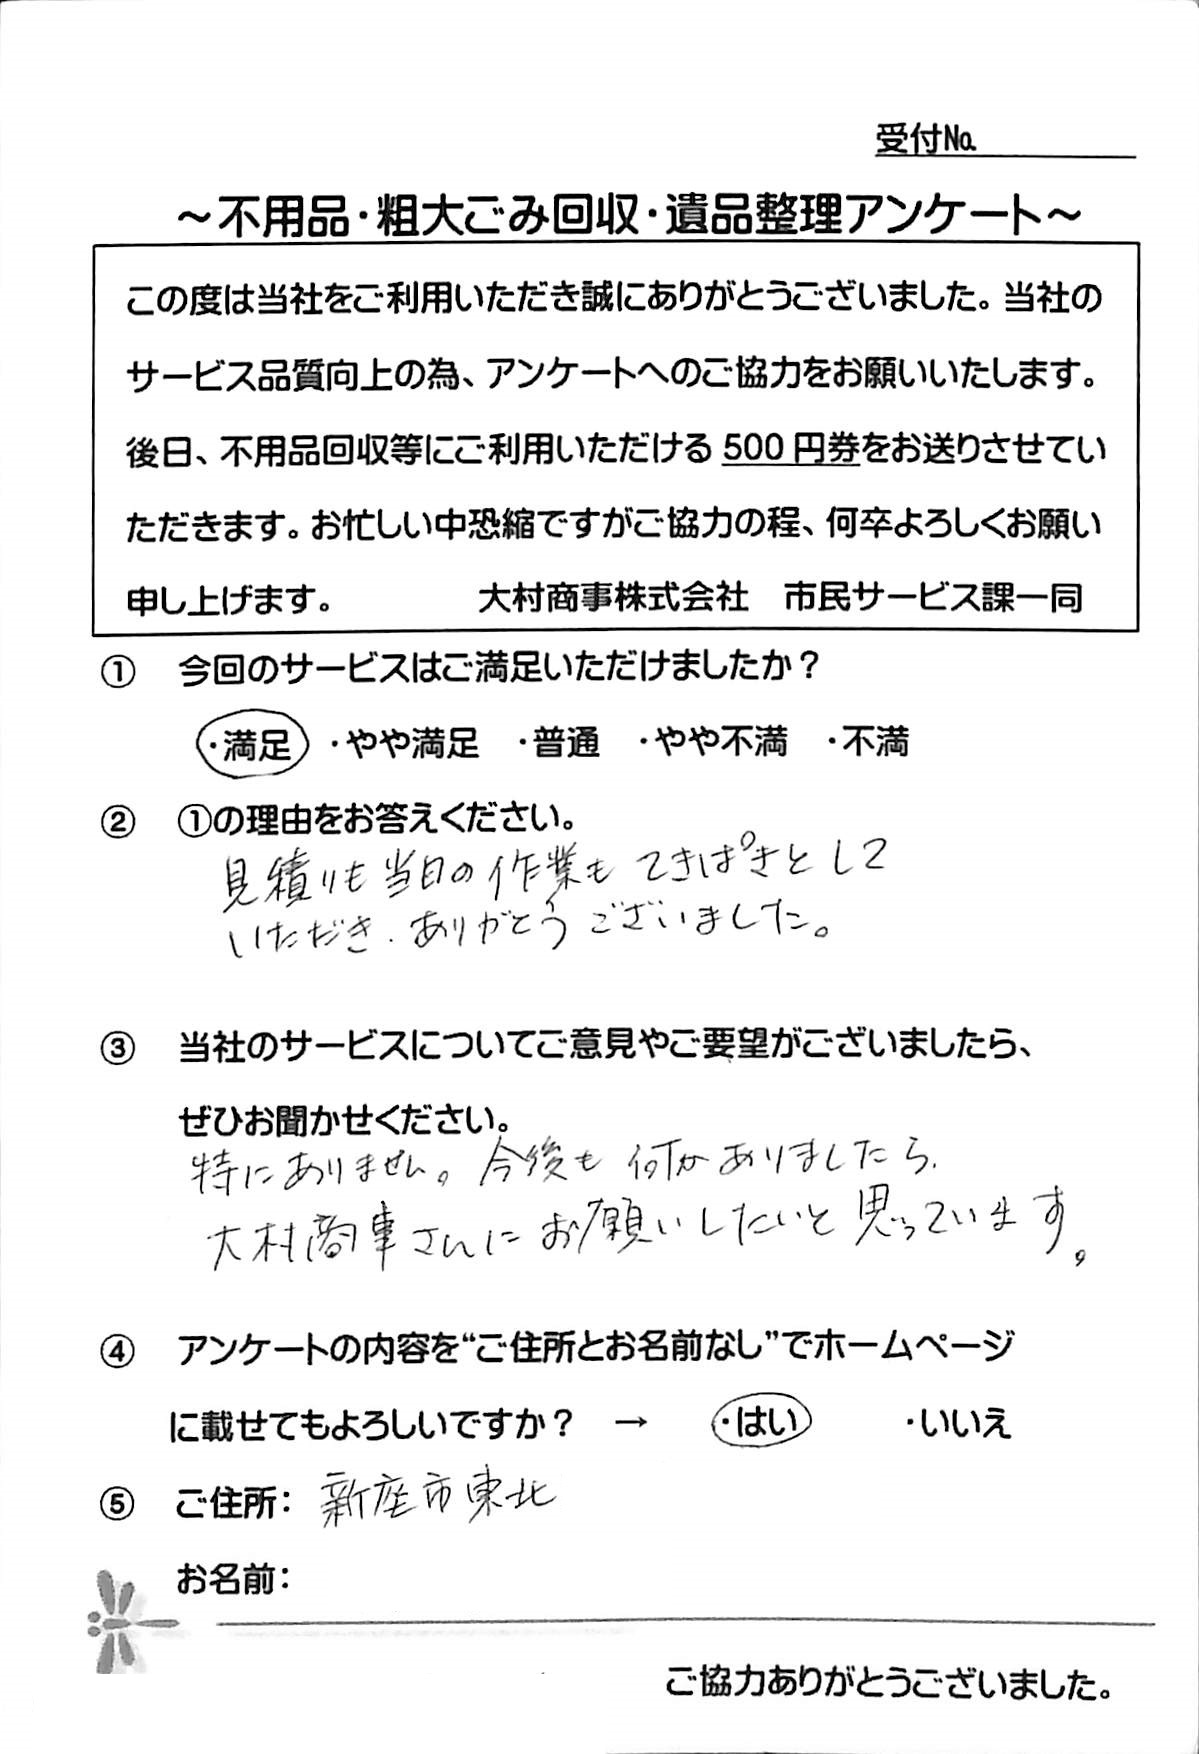 受付No.
～不用品・粗大ごみ回収・遺品整理アンケート～
この度は当社をご利用いただき誠にありがとうございました。当社の
サービス品質向上の為、アンケートへのご協力をお願いいたします。
後日、不用品回収等にご利用いただける 500 円券をお送りさせてい
ただきます。お忙しい中恐縮ですがご協力の程、何卒よろしくお願い
申し上げます。 大村商事株式会社 市民サービス課一同
① 今回のサービスはご満足いただけましたか？
・満足 ・やや満足 ・普通 ・やや不満 ・不満
② ①の理由をお答えください。
見積りも当日の作業も てきぱきとして
いただき、ありがとうございました。
③ 当社のサービスについてご意見やご要望がございましたら、
ぜひお聞かせください。
特にありません。今後も何かありましたら、
大村商事さんにお願いしたいと思っています。
④ アンケートの内容を“ご住所とお名前なし”でホームページ
に載せてもよろしいですか？ → ・はい ・いいえ
⑤ ご住所： 新座市東北
お名前：
ご協力ありがとうございました。